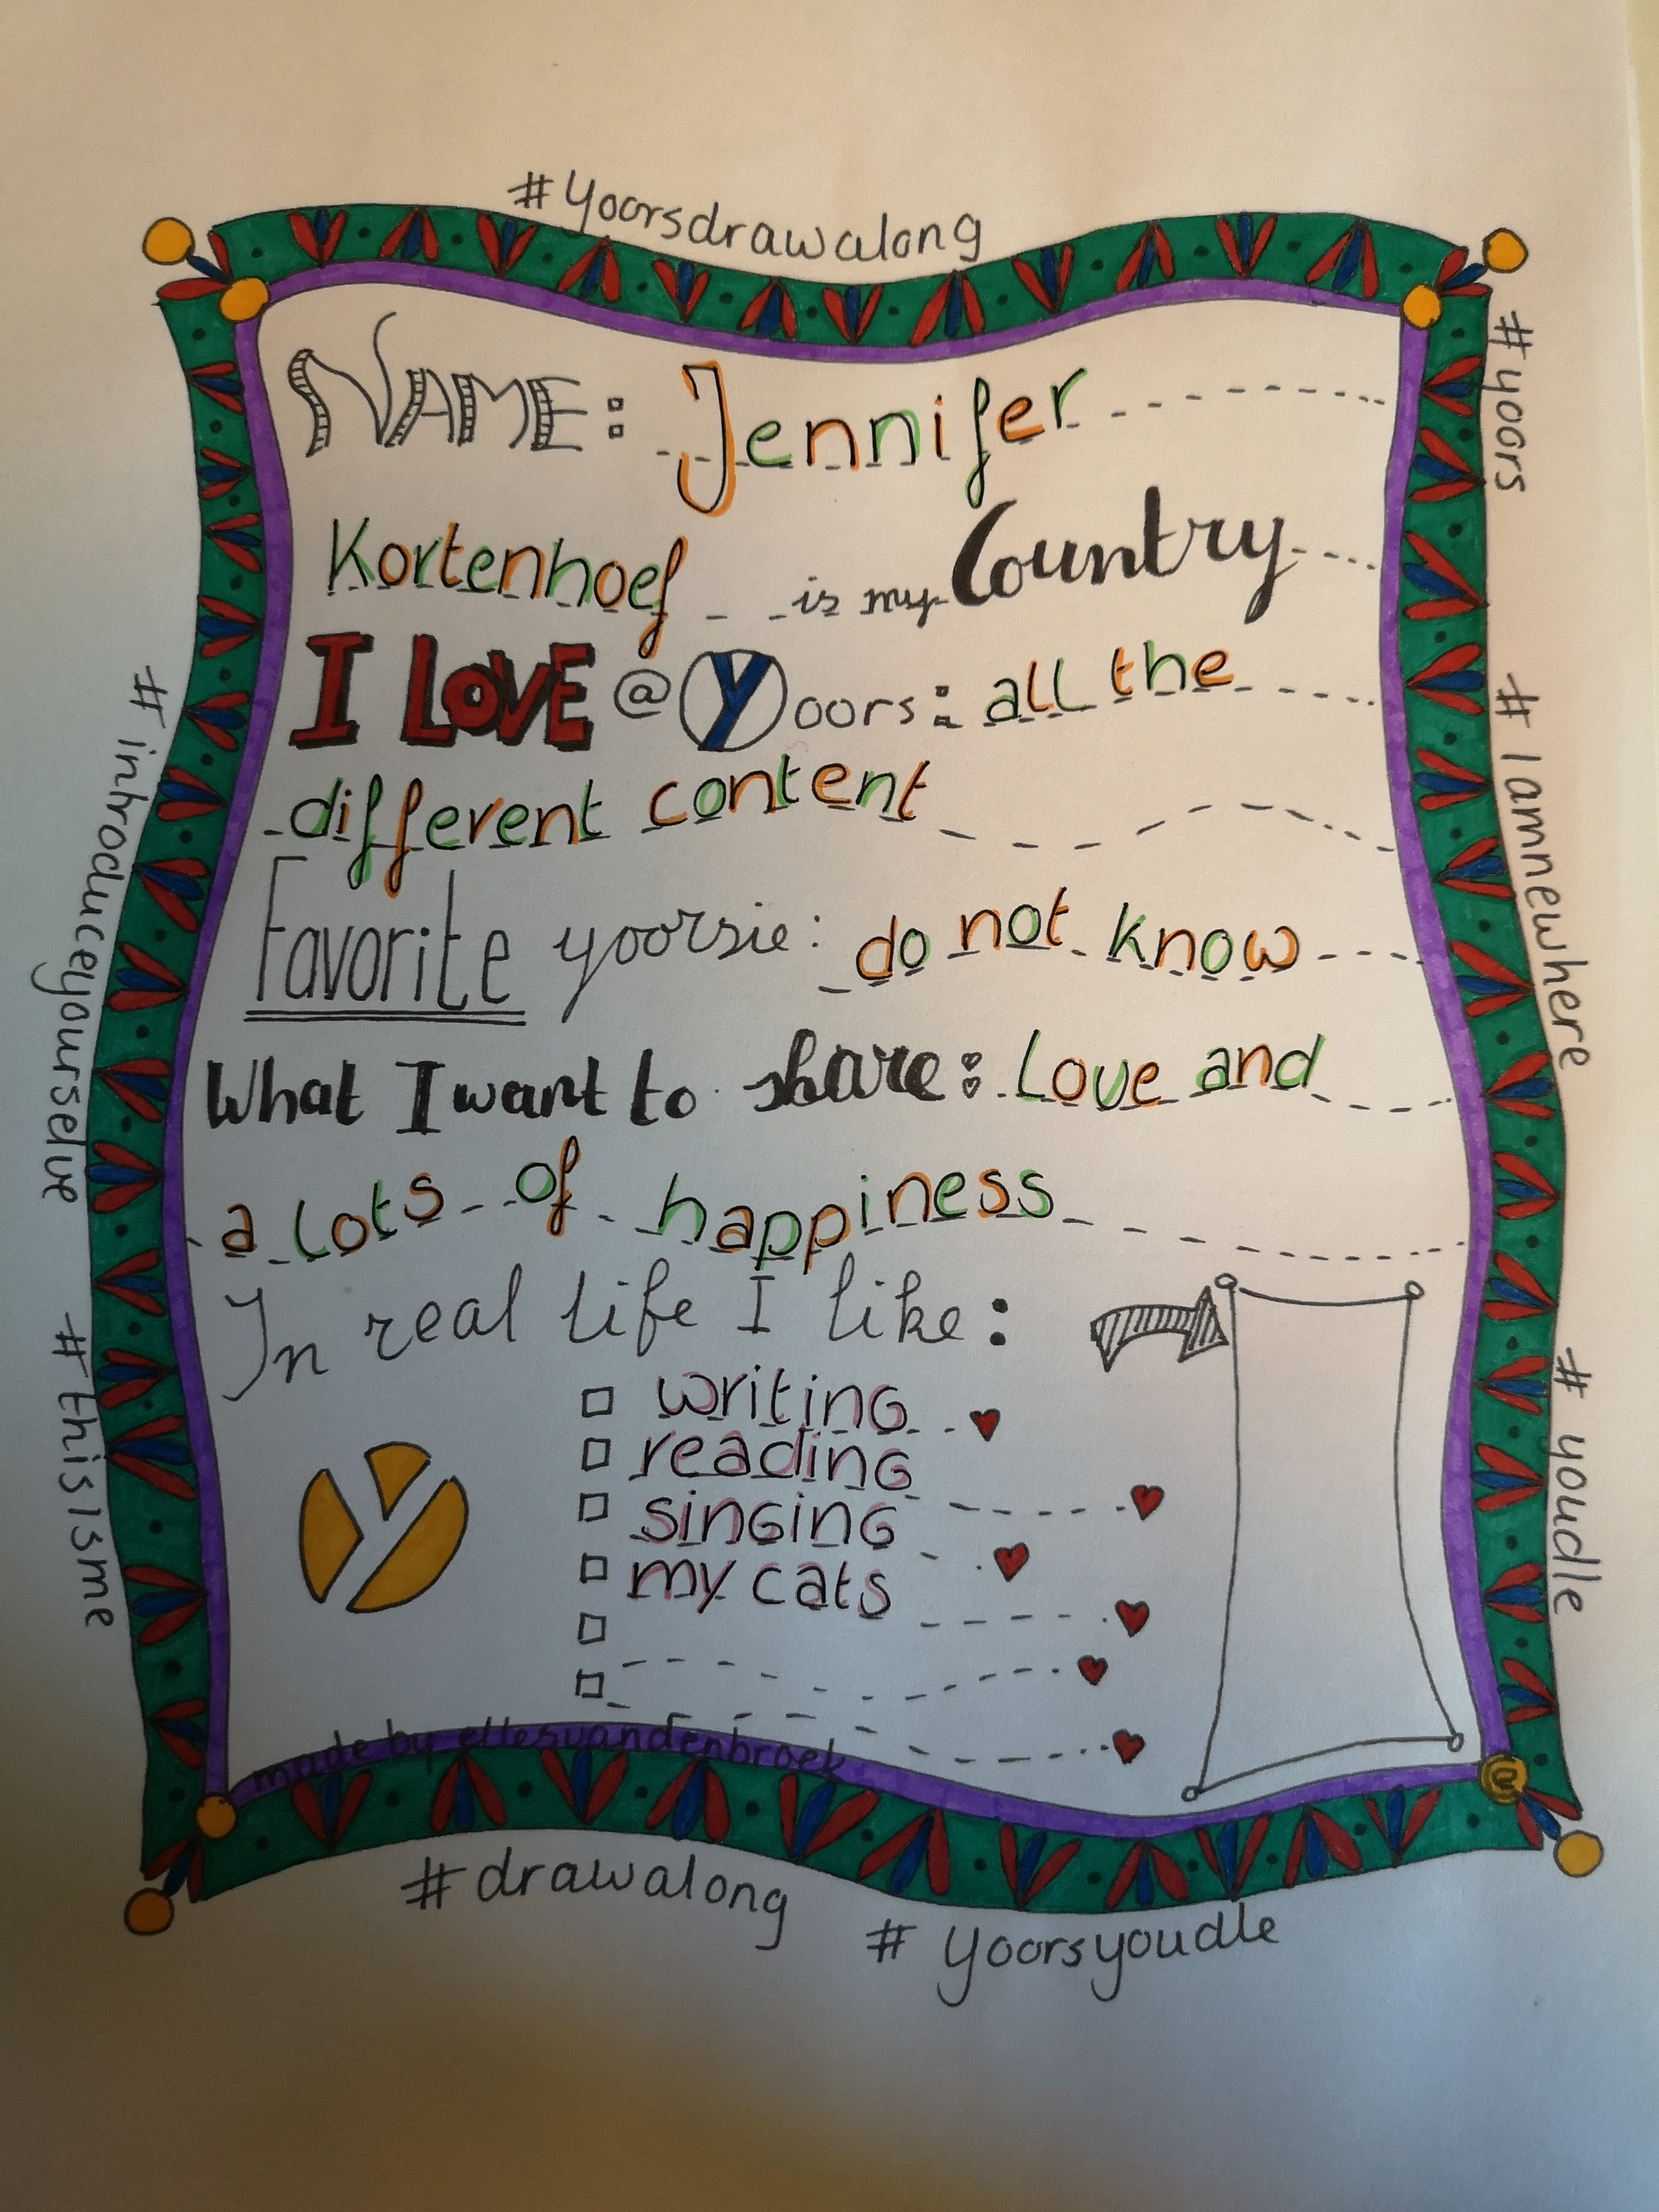 #Yoorsdrawalong
NAME: Jennifer
Kortenhoef is my Country
I LOVE @Yoors: all the
different content
Favorite yoorsie: do not know
What I want to share: Love and
a lots of happiness
In real life I like:
writing
reading
singing
my cats
Y
made by ellesvandenbroek
#drawalong
# Yoorsyoudle
#introduceyourselve
#thisisme
#yoors
#Iamnewhere
# youdle
e